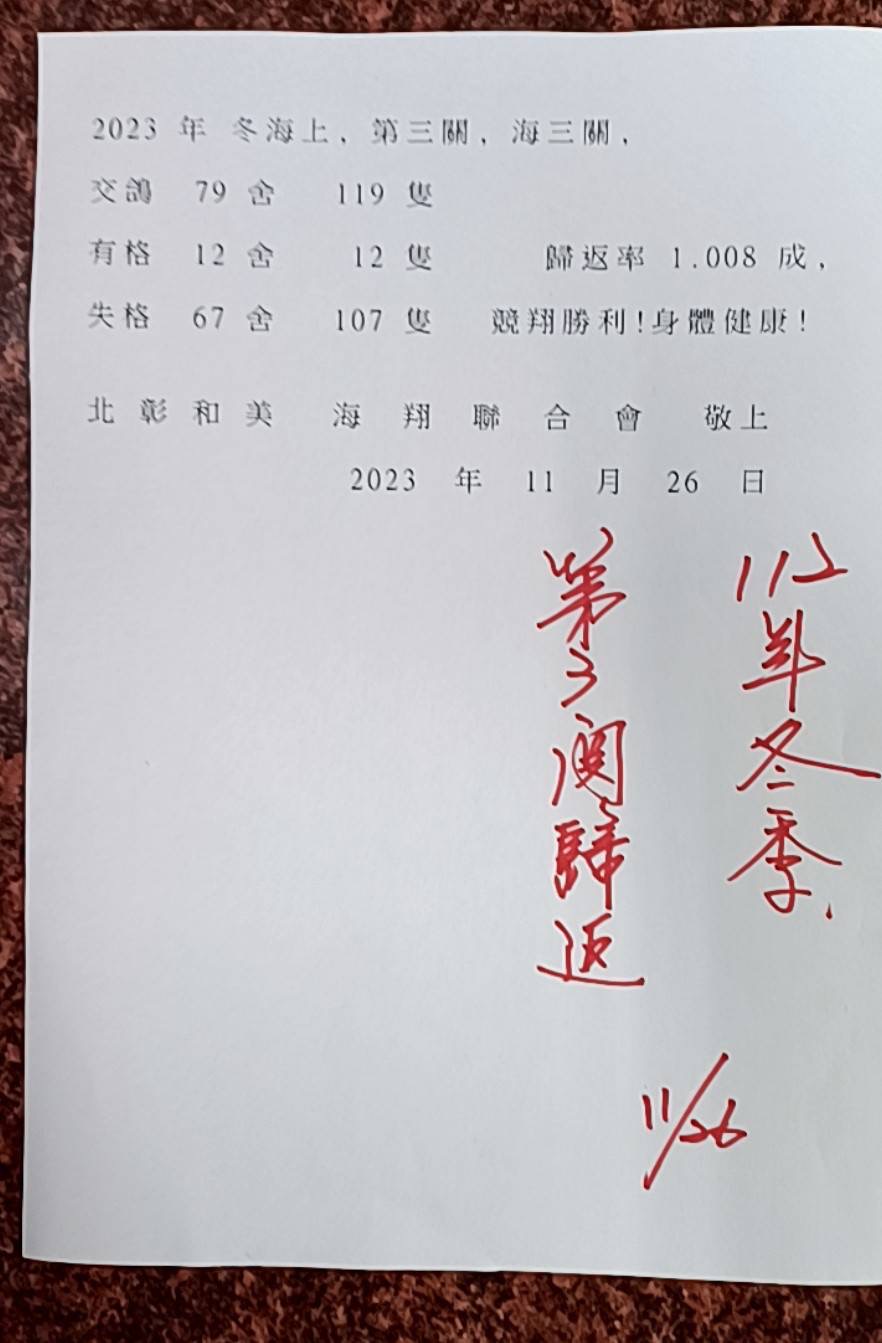 2023 年 冬海上、第三關，海三關，
交鴿 79 舍 119 隻
有格 12 舍 12 隻 歸返率 1.008 成，
失格 67 舍 107 隻 競翔勝利!身體健康!
北彰和美 海翔聯合會 敬上
2023 年 11 月 26 日
112年冬季.
第3関歸返
11/26